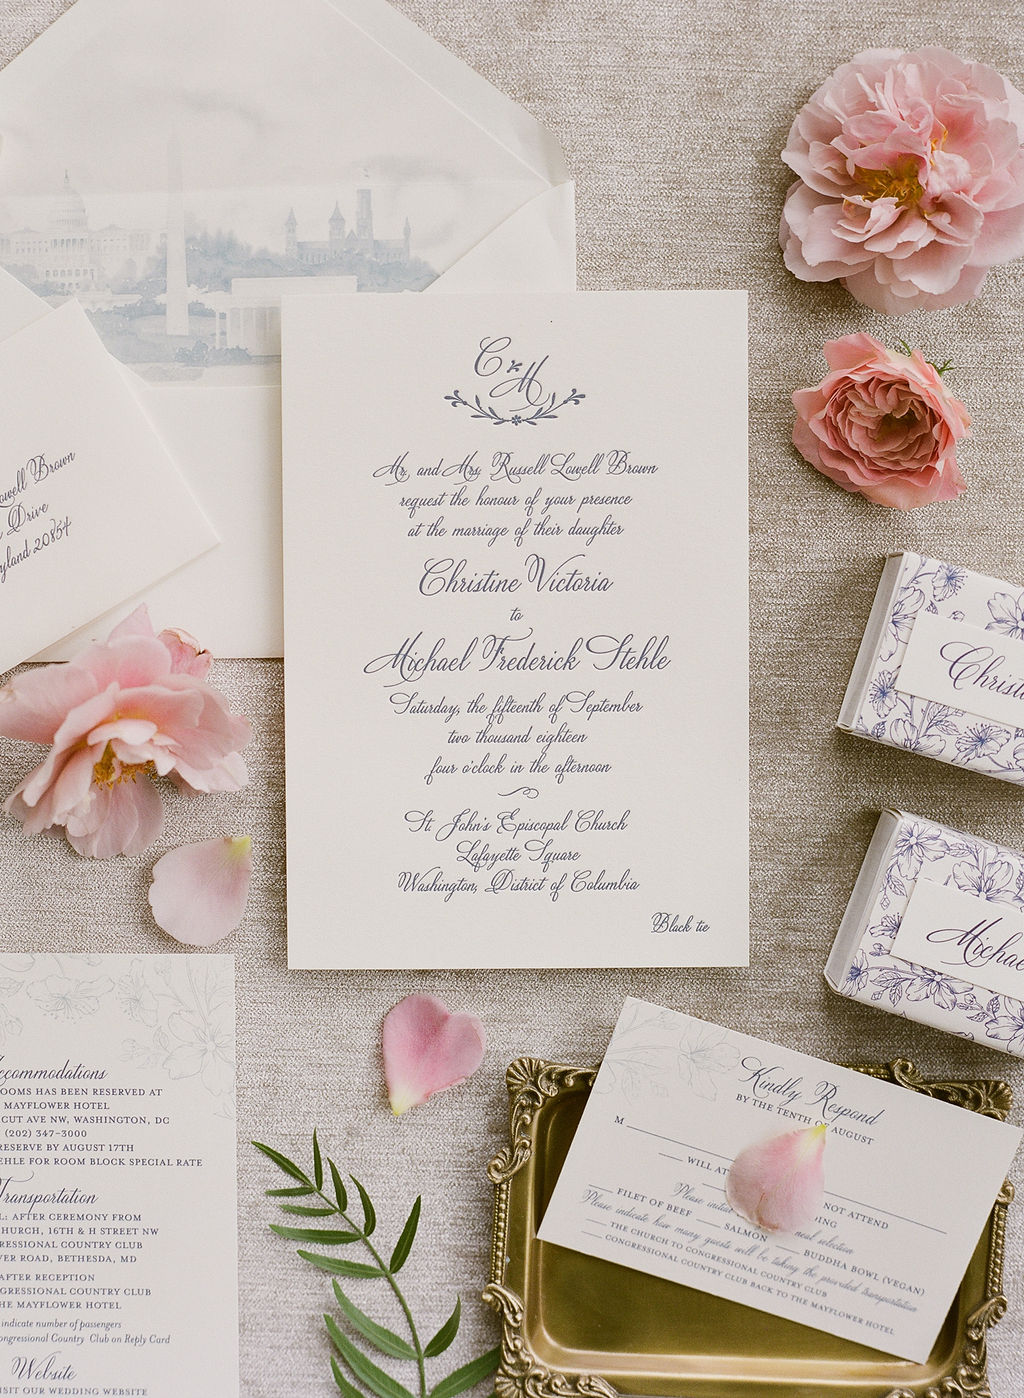 C & M
Mr. and Mrs. Russell Lowell Brown
request the honour of your presence
at the marriage of their daughter
Christine Victoria
to
Michael Frederick Stehle
Saturday, the fifteenth of September
two thousand eighteen
four o'clock in the afternoon
St. John's Episcopal Church
Lafayette Square
Washington, District of Columbia
Black tie
owell Brown
Drive
yland 20854
Christi
Michae
ccommodations
OOMS HAS BEEN RESERVED AT
MAYFLOWER HOTEL
CUT AVE NW, WASHINGTON, DC
(202) 347-3000
RESERVE BY AUGUST 17TH
EHLE FOR ROOM BLOCK SPECIAL RATE
Transportation
L: AFTER CEREMONY FROM
HURCH, 16TH & H STREET NW
GRESSIONAL COUNTRY CLUB
VER ROAD, BETHESDA, MD
AFTER RECEPTION
NGRESSIONAL COUNTRY CLUB
HE MAYFLOWER HOTEL
indicate number of passengers
ongressional Country Club on Reply Card
Website
ISIT OUR WEDDING WEBSITE
Kindly Respond
BY THE TENTH OF AUGUST
M
WILL AT NOT ATTEND
Please initial meal selection
FILET OF BEEF SALMON BUDDHA BOWL (VEGAN)
Please indicate how many guests will be taking the provided transportation
THE CHURCH TO CONGRESSIONAL COUNTRY CLUB
CONGRESSIONAL COUNTRY CLUB BACK TO THE MAYFLOWER HOTEL